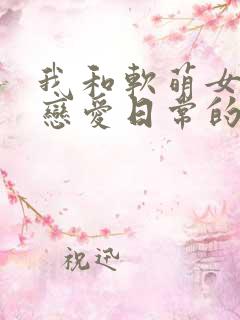 我和軟萌女
戀愛日常的
祝迅